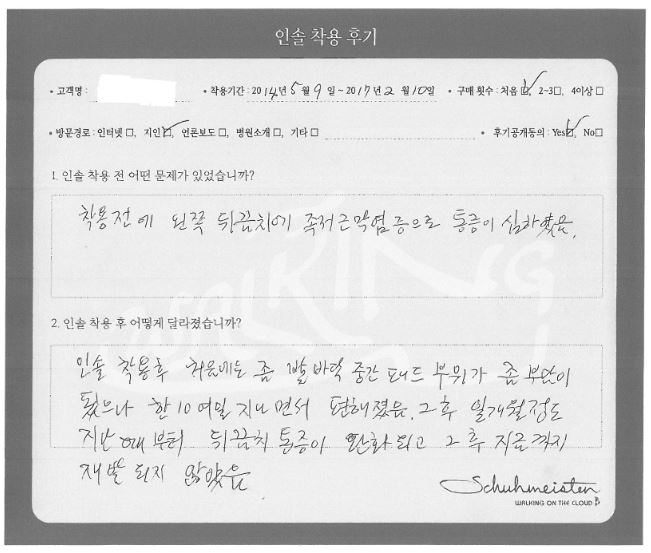 인솔 착용 후기
• 고객명 : • 착용기간 : 2014년 5월 9일 ~ 2017년 2월 10일 • 구매 횟수 : 처음☑, 2~3□, 4이상□
• 방문경로 : 인터넷□, 지인☑, 언론보도□, 병원소개□, 기타□ • 후기공개동의 : Yes☑, No□
1. 인솔 착용 전 어떤 문제가 있었습니까?
착용전에 왼쪽 뒤꿈치에 족저근막염증으로 통증이 심하였음.
WALKING
2. 인솔 착용 후 어떻게 달라졌습니까?
인솔 착용후 처음에는 좀 발바닥 중간 패드 부위가 좀 부담이
됬으나 한 10여일 지나면서 편해졌음. 그후 일개월정도
지난 때부터 뒤꿈치 통증이 완화되고 그 후 지금까지
재발 되지 않았음
Schuhmeister
WALKING ON THE CLOUD B